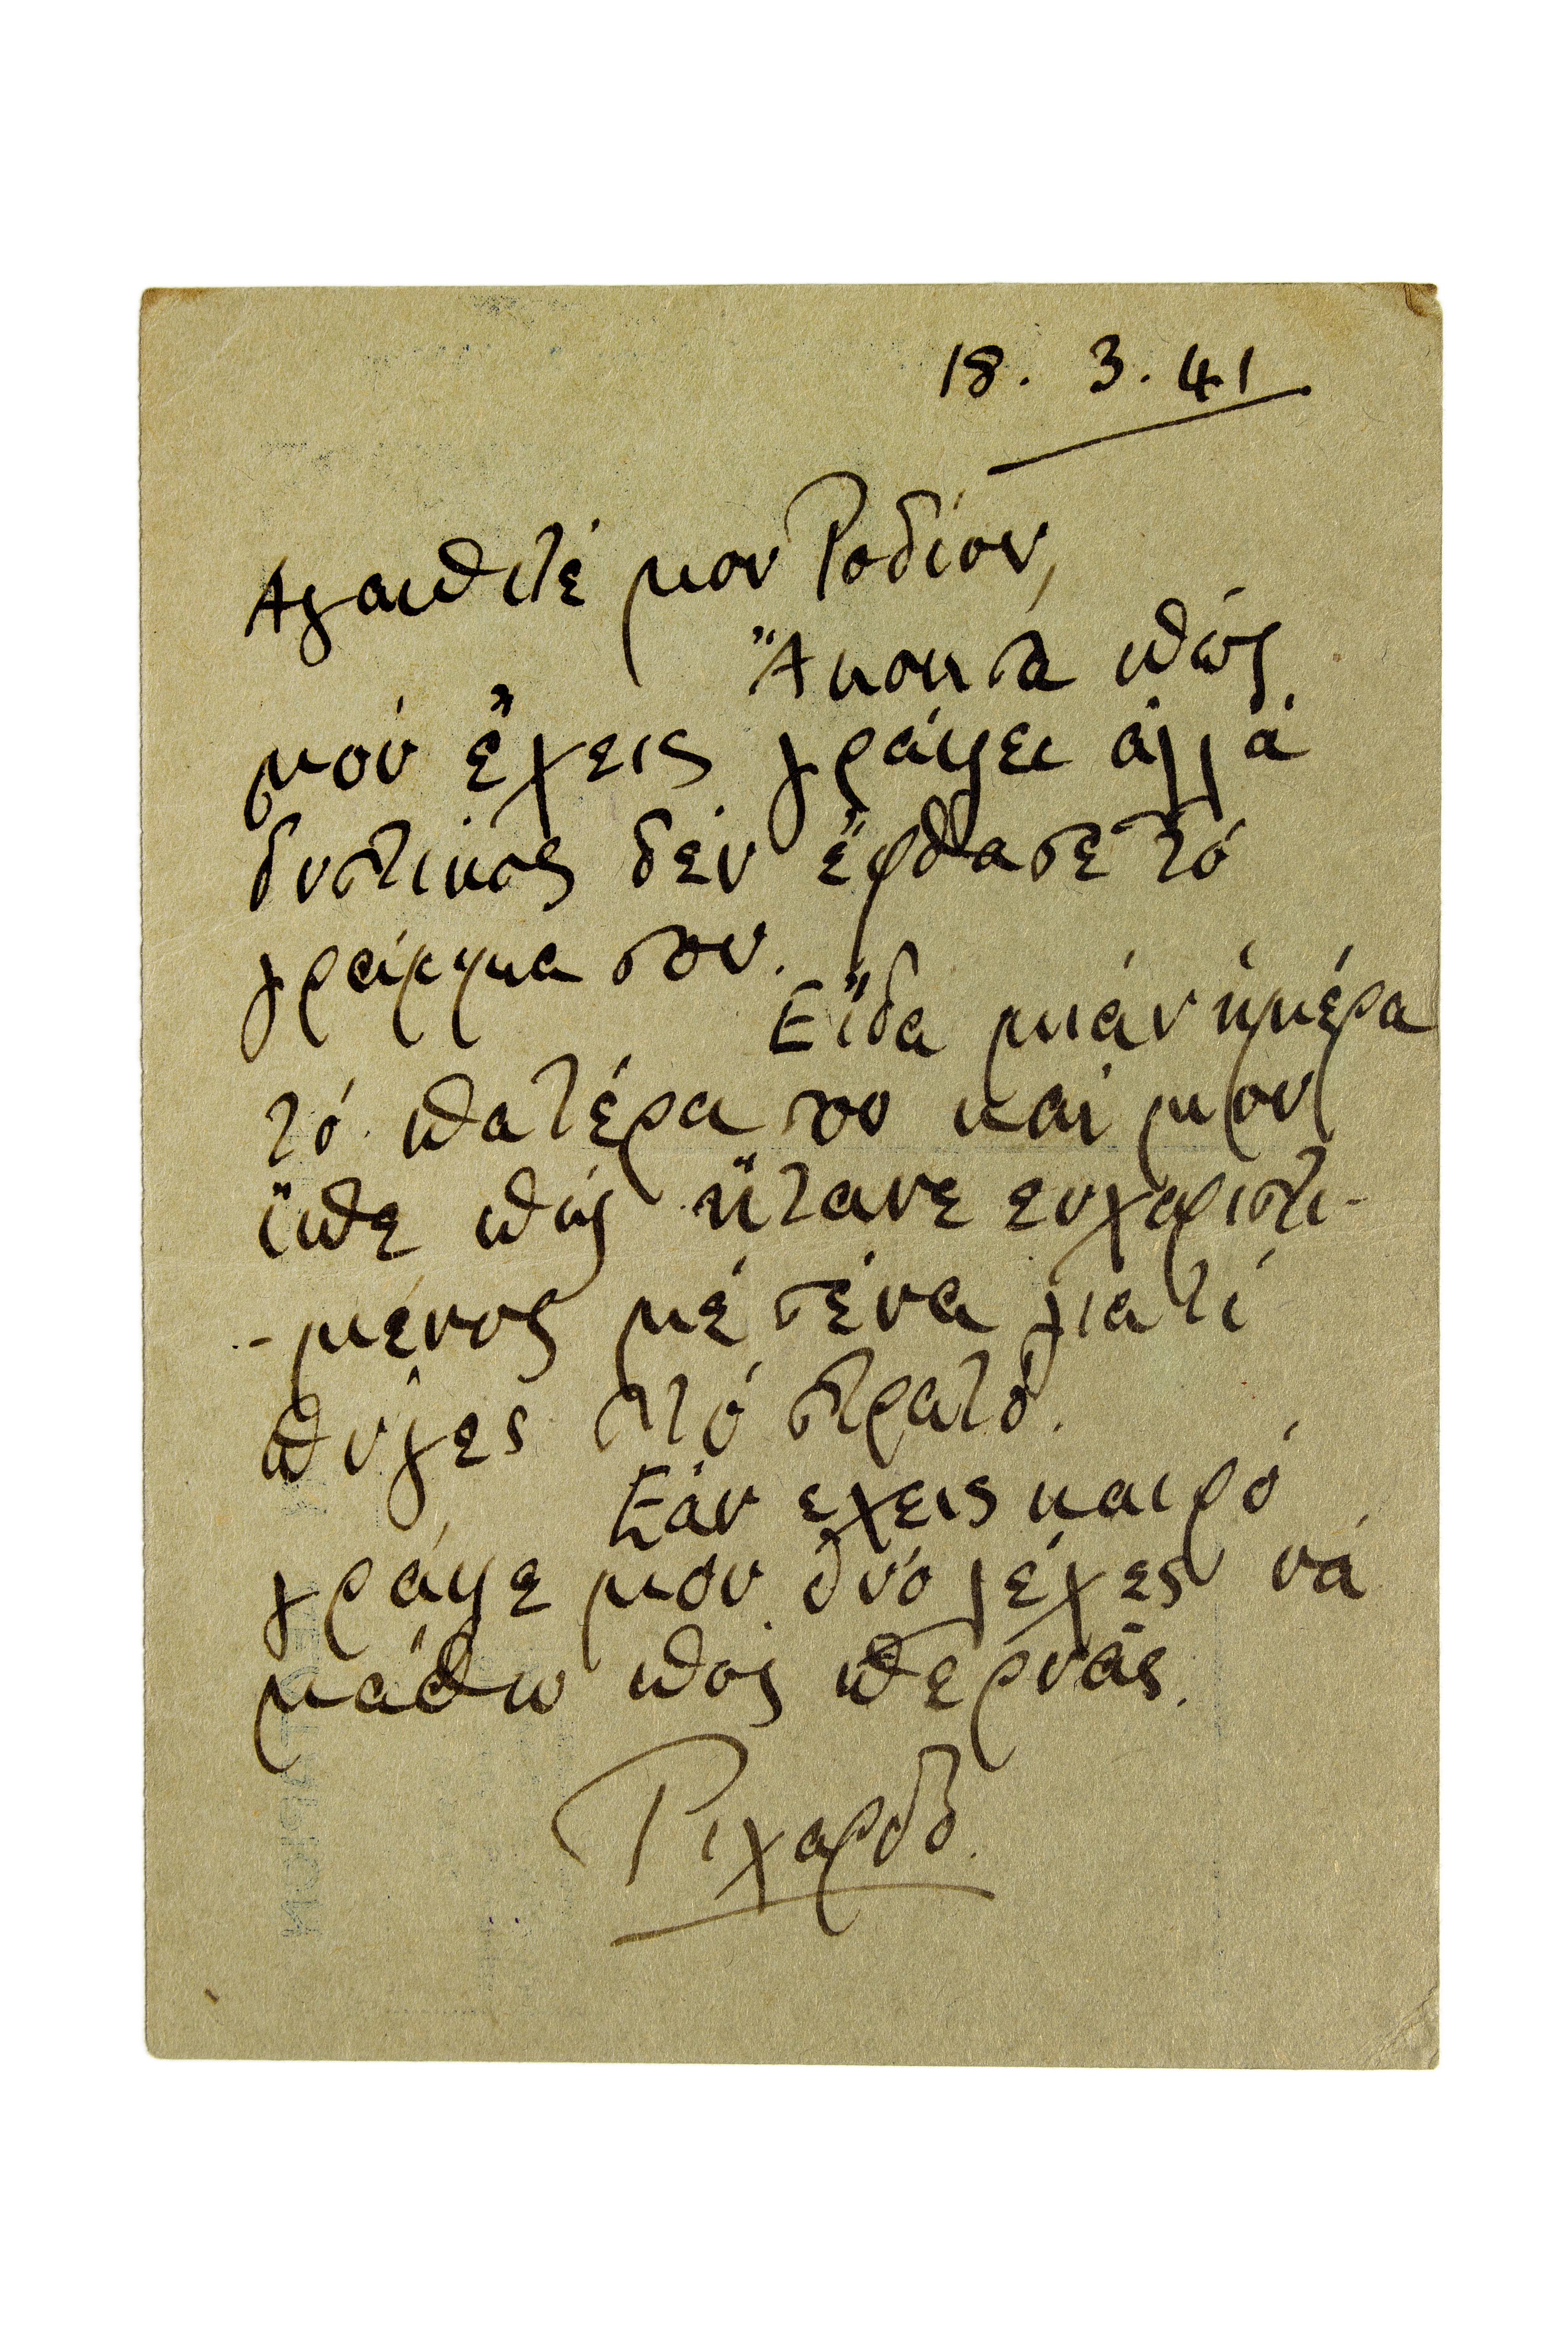 18. 3. 41
Αγαπιτέ μου Ροδίον,
Ἄκουσα πώς
μού ἔχεις γράψει ἀλλά
δυστικός δέν ἔφθασε τό
γράμμα σου.
Εἴδα μιάν ἡμέρα
τό πατέρα σο καί μου
ἴπε πώς ἤτανε ευχαριστι-
-μένος μέ σένα γιατί
πύγες στό στρατό.
Εάν εχεις καιρό
γράψε μου δυό λέχες νά
μάθω πός περνάς.
Ριχαρδο.